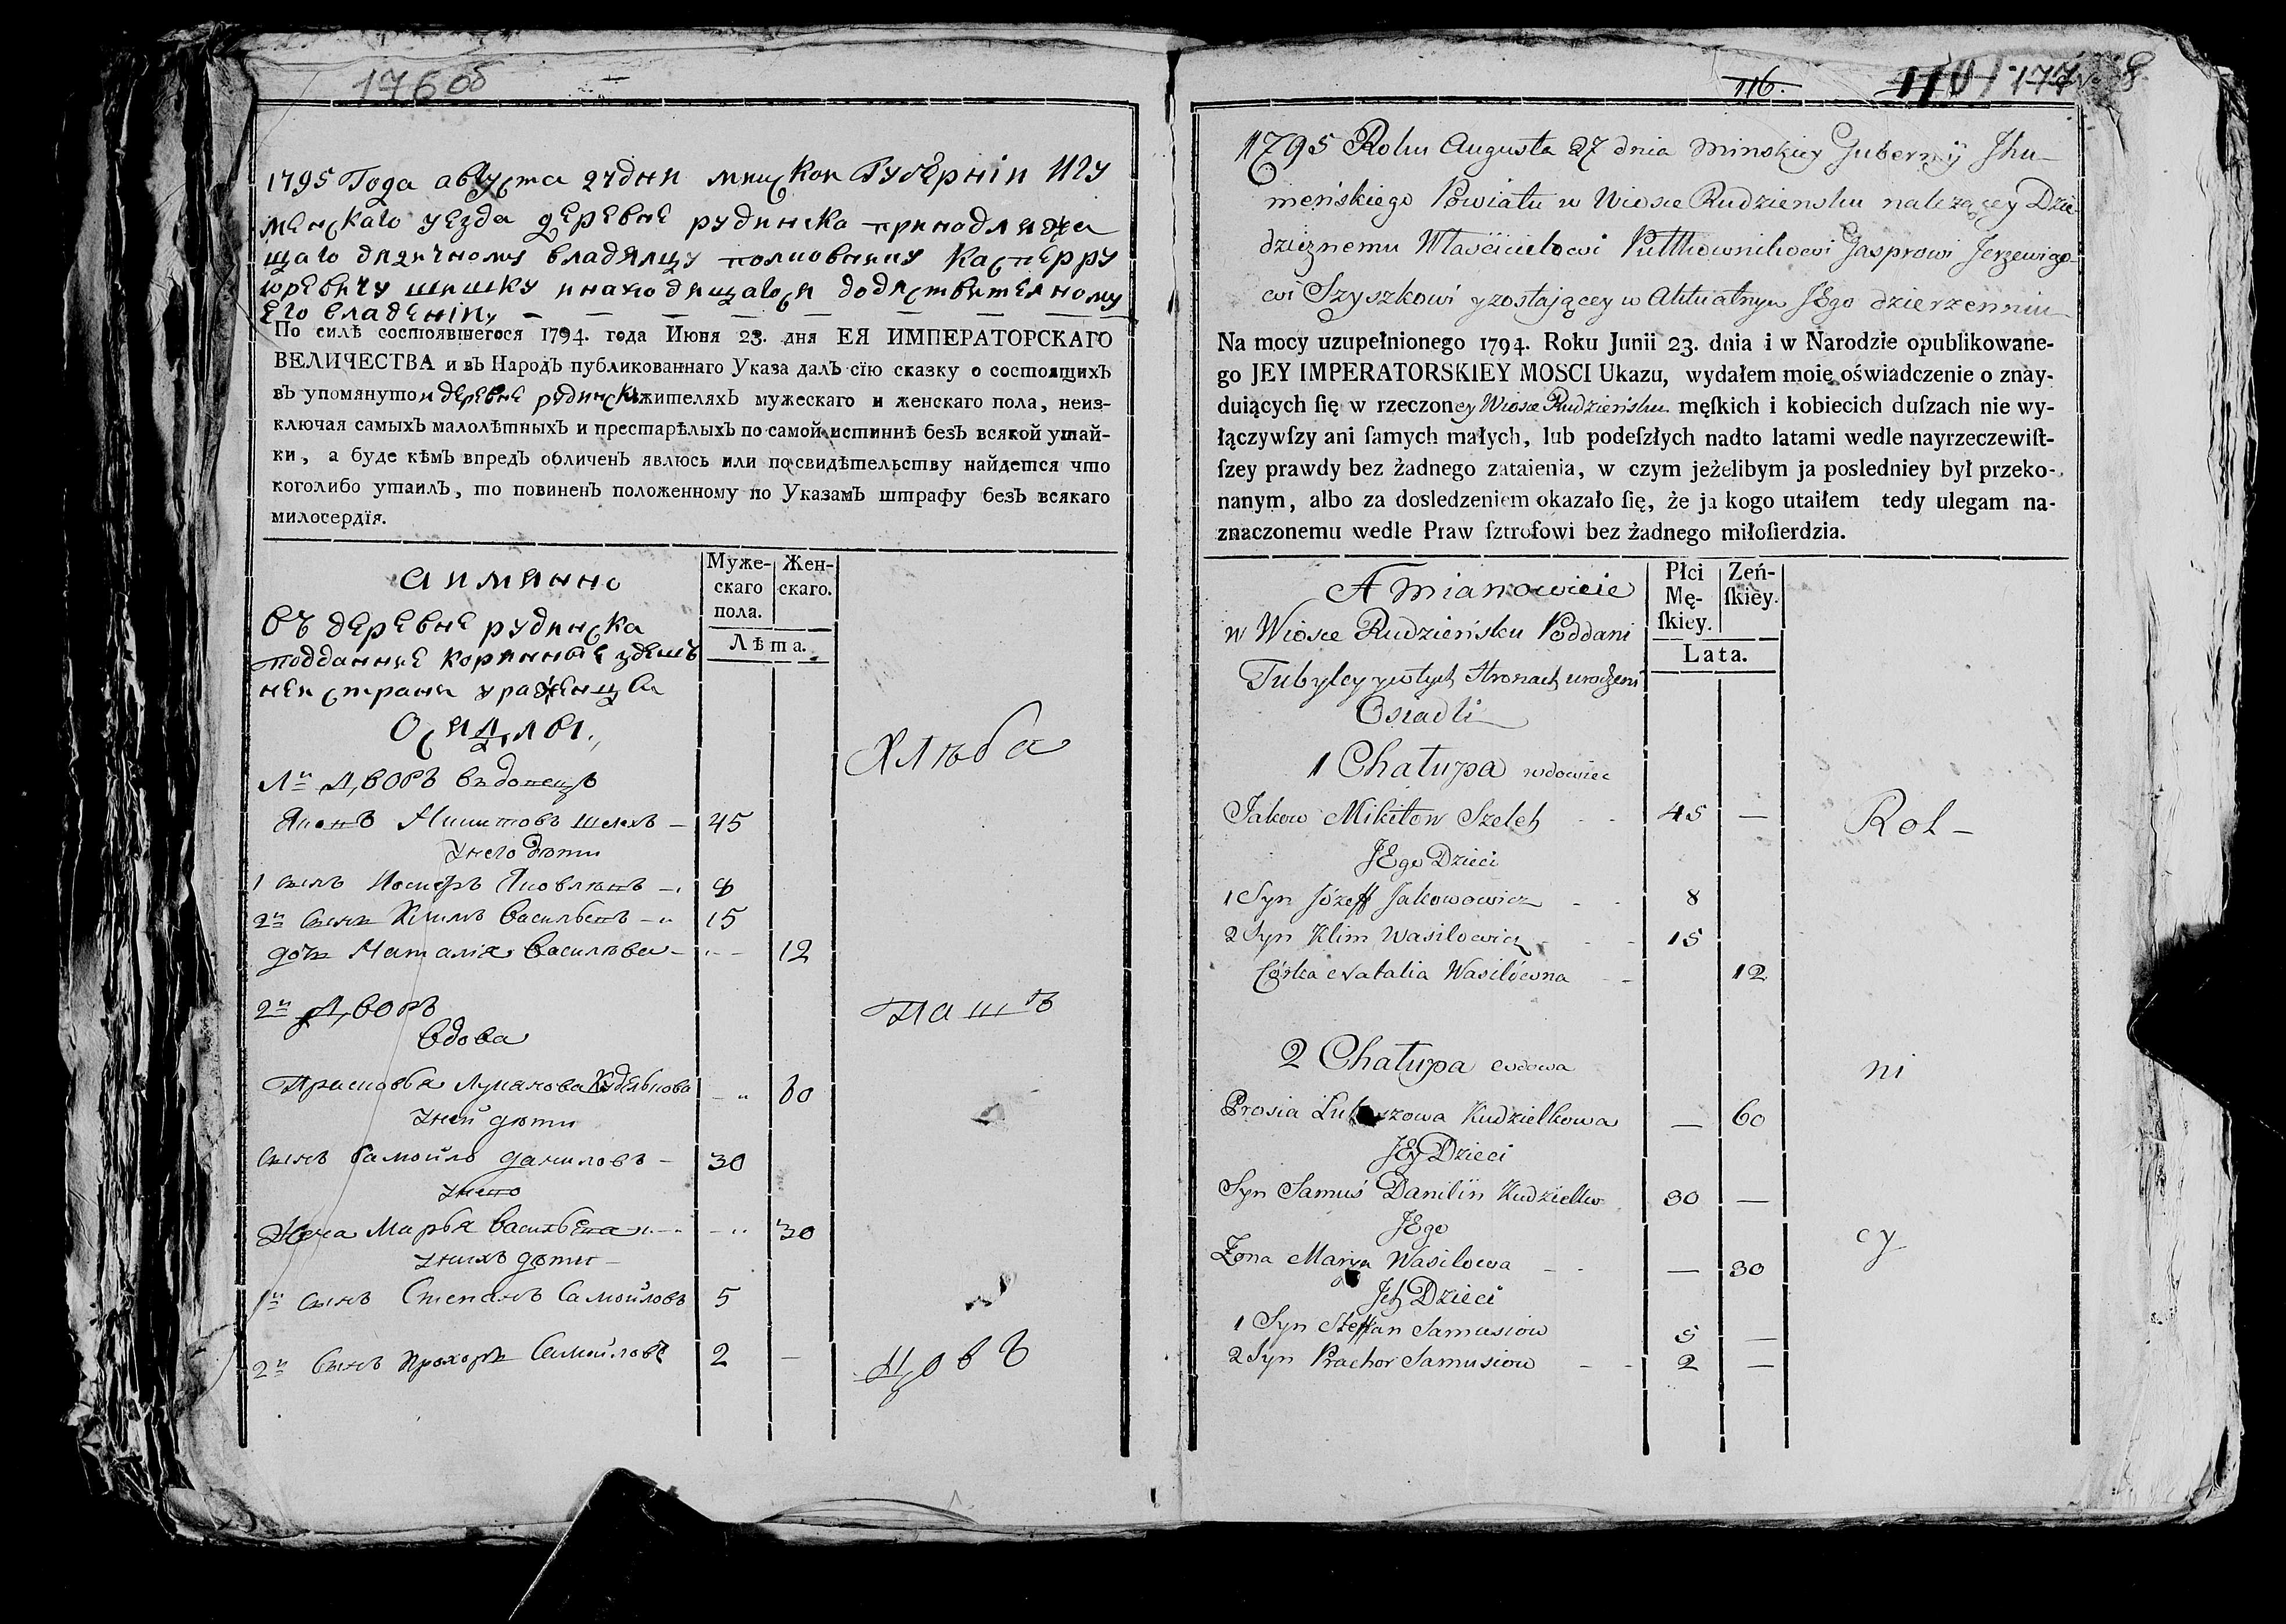 176об
1795 Года августа 27 дня минской Губернiи Игу
менскаго уезда деревне рудинска принадлежа
щаго дедичному владелцу полковнику Касперру
юревичу шишку инаходящагося додествителному
Его владению
По силѣ состоявшегося 1794. года Июня 23. дня ЕЯ ИМПЕРАТОРСКАГО
ВЕЛИЧЕСТВА и въ Народъ публикованнаго Указа далъ сїю сказку о состоящихъ
въ упомянутой деревне рудинска жителяхъ мужескаго и женскаго пола, неиз-
ключая самыхъ малолѣтныхъ и престарѣлыхъ по самой истиннѣ безъ всякой утай-
ки, а буде кѣмъ впредъ обличенъ явлюсь или по свидѣтельству найдется что
коголибо утаилъ, то повиненъ положенному по Указамъ штрафу безъ всякаго
милосердїя.
а имянно
Муже-скаго пола. Жен-скаго.
Лѣта.
въ деревне рудинска
подданные коринные здешъ
ней страны уроженцы
Оседлы.
1й Дворъ вдовецъ
Яковъ Микитовъ шелехъ 45
унего дѣти
1 сынъ Иосифъ Яковлевъ 8
2й сынъ Климъ Васильевъ 15
дочь Наталiя Васильева 12
2й Дворъ
вдова
Прасковья Лукачова Куделькова 60
уней дѣти
сынъ Самойло даниловъ 30
унево
Жена Марья Васильева 30
унихъ дѣти
1й сынъ Степанъ Самойловъ 5
2й сынъ Прохоръ Самойловъ 2 —
Хлѣба
паш
цовъ
116.
1795 Roku Augusta 27 dnia Minskiey Guberniÿ Jhu-
meńskiego Powiatu w Wiosce Rudzieńsku należącey Dzie-
dzicznemu Właścicielowi Pułkownikowi Gasprowi Jerzewiczo-
wi Szyszkowi y zostającey w Aktualnym JEgo dzierżenniu
Na mocy uzupełnionego 1794. Roku Junii 23. dnia i w Narodzie opublikowane-
go JEY IMPERATORSKIEY MOSCI Ukazu, wydałem moie oświadczenie o znay-
duiących ſię w rzeczoney Wiosce Rudzieńsku męſkich i kobiecich duſzach nie wy-
łączywſzy ani ſamych małych, lub podeſzłych nadto latami wedle nayrzeczewiſt-
ſzey prawdy bez żadnego zataienia, w czym jeżelibym ja posledniey był przeko-
nanym, albo za dosledzeniem okazało ſię, że ja kogo utaiłem tedy ulegam na-
znaczonemu wedle Praw ſztrofowi bez żadnego miłoſierdzia.
A mianowicie
Płci Mę-ſkiey. Zeń-ſkiey.
Lata.
w Wiosce Rudzieńsku Poddani
Tubylcy y w tych Stronach urodzeni
Osiadli
1 Chałupa wdowiec
Jakow Mikitow Szeleh 45 —
JEgo Dzieci
1 Syn Józeff Jakowowicz 8
2 Syn Klim Wasilowicz 15
Córka Natalia Wasilówna 12
2 Chałupa wdowa
Prosia Łukaszowa Kudzielkowa — 60
JEy Dzieci
Syn Samuś Daniliin Kudzielko 30 —
JEgo
Żona Marya Wasilowa — 30
Jch Dzieci
1 Syn Steffan Samusiow 5 —
2 Syn Prachor Samusiow 2 —
Rol-
ni
cy